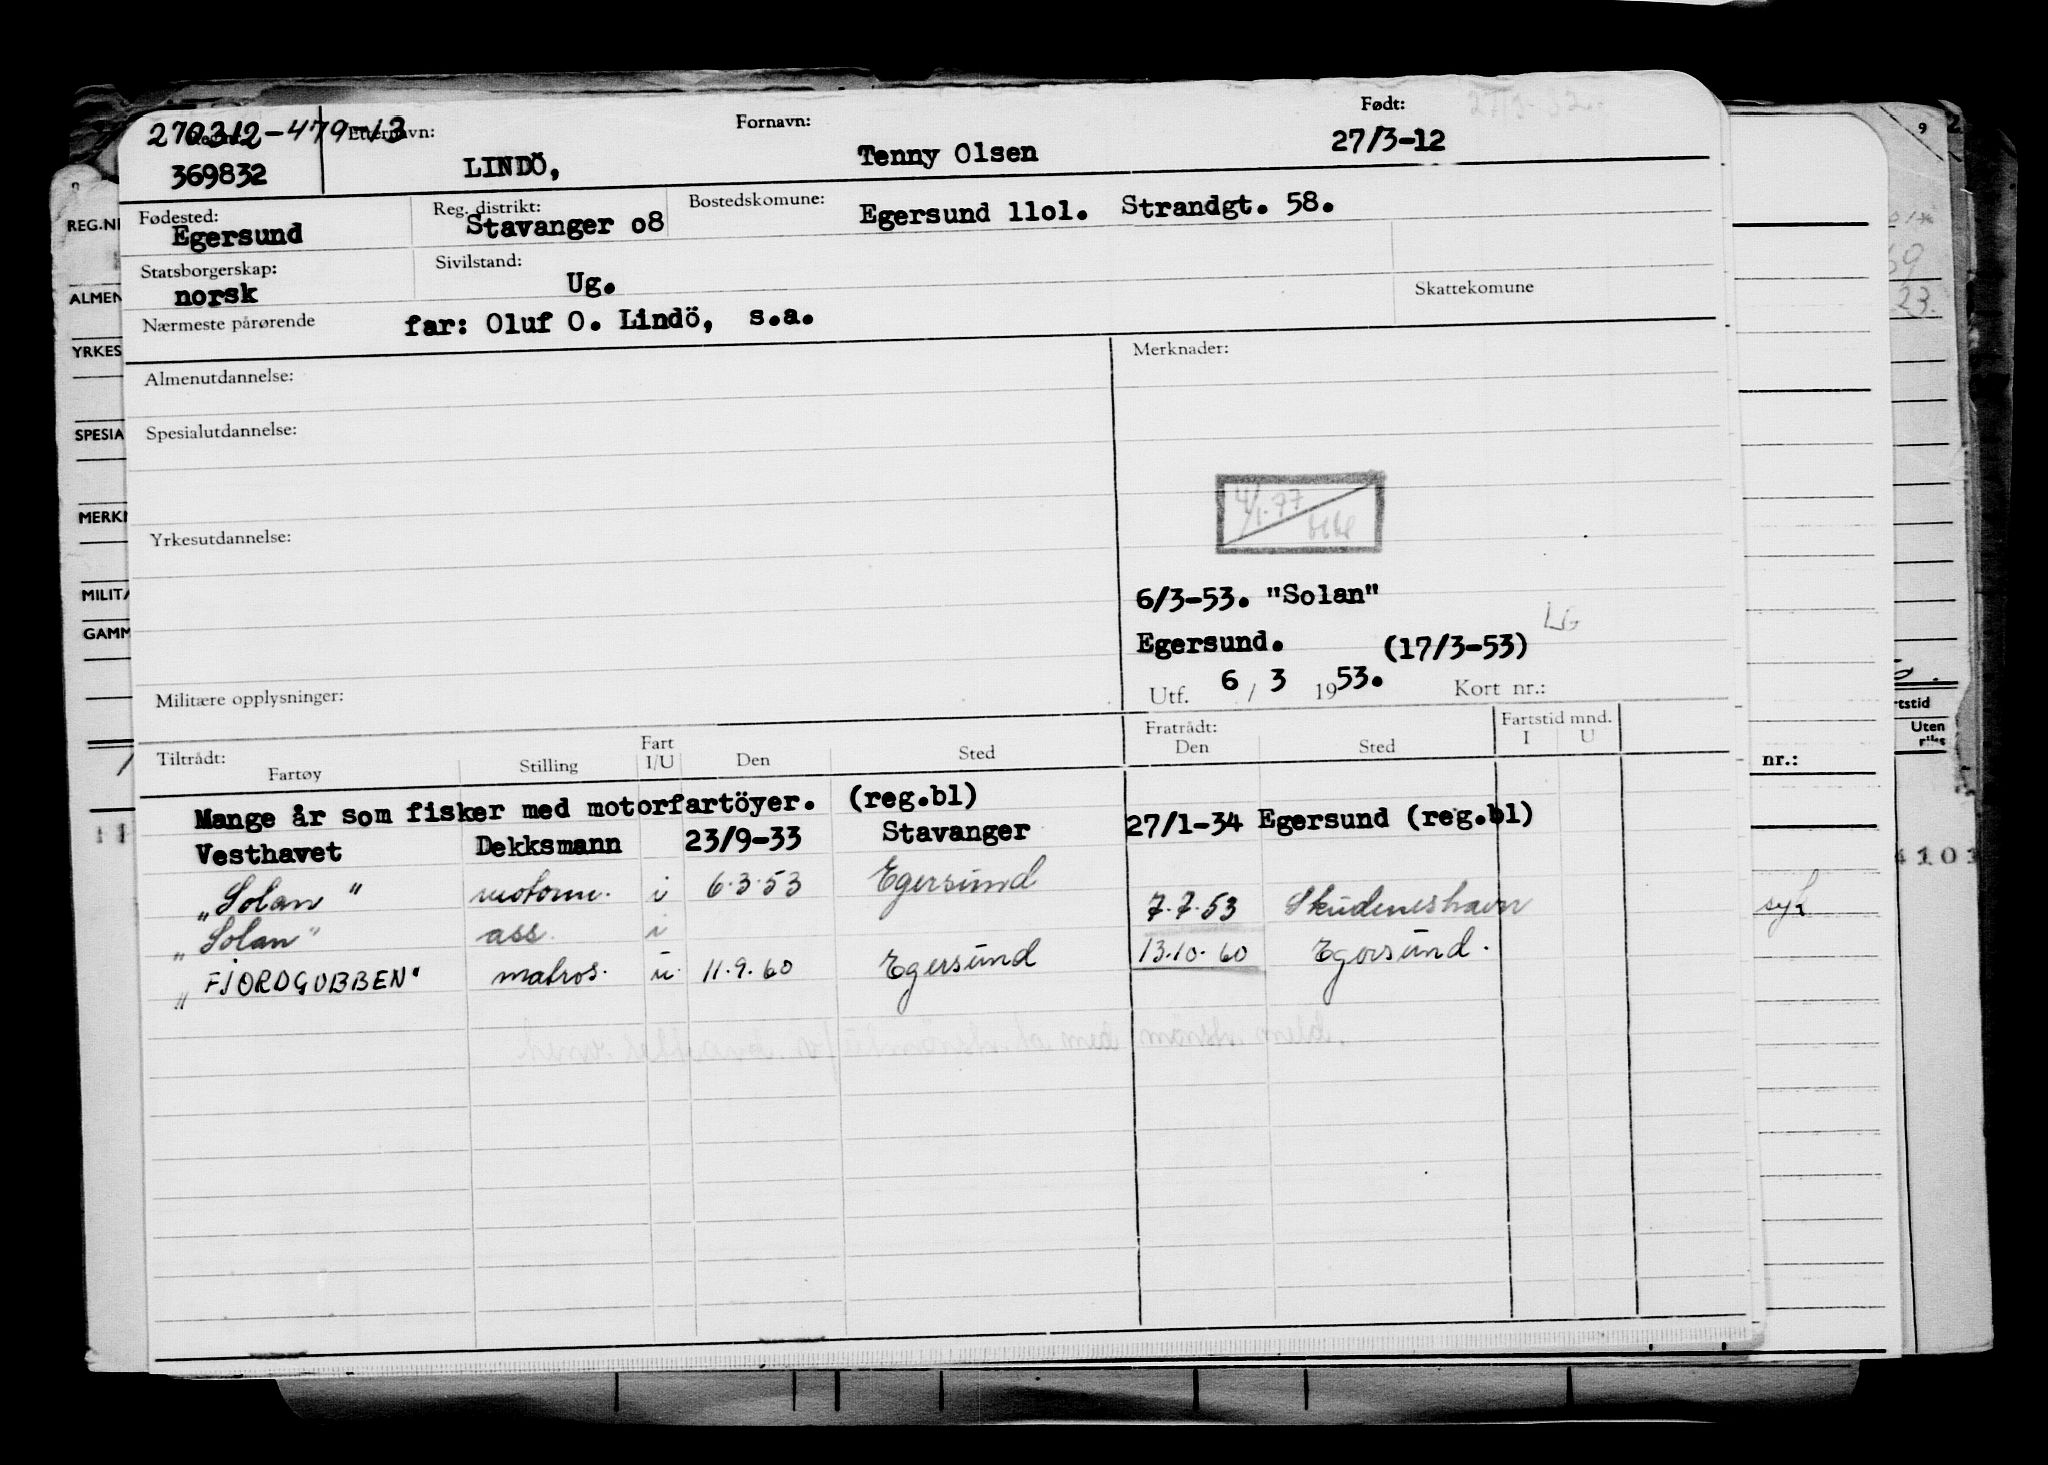 27/3-32
270312-47943 Etternavn: Fornavn: Født:
369832 LINDÖ, Tenny Olsen 27/3-12
Fødested: Reg. distrikt: Bostedskomune:
Egersund Stavanger o8 Egersund 11o1. Strandgt. 58.
Statsborgerskap: Sivilstand:
norsk Ug. Skattekomune
Nærmeste pårørende far: Oluf O. Lindö, s.a.
Almenutdannelse: Merknader:
Spesialutdannelse:
4/1-77
Yrkesutdannelse:
6/3-53. "Solan"
LG
Egersund. (17/3-53)
Militære opplysninger: Utf. 6 / 3 1953. Kort nr.:
Tiltrådt: Fratrådt: Fartstid mnd.
Fartøy Stilling Fart I/U Den Sted Den Sted I U
Mange år som fisker med motorfartöyer. (reg.bl)
Vesthavet Dekksmann 23/9-33 Stavanger 27/1-34 Egersund (reg.bl)
"Solan" motorm. i 6.3.53 Egersund 7.7.53 Skudeneshavn
"Solan" ass. i
"FJORDGUBBEN" matros. u. 11.9.60 Egersund 13.10.60 Egersund.
REG.NR
ALMEN
YRKES
SPESIA
MERKN
MILITÆ
GAMM
9
69
23.
rtstid
Uten
riks
nr.:
4101
syk